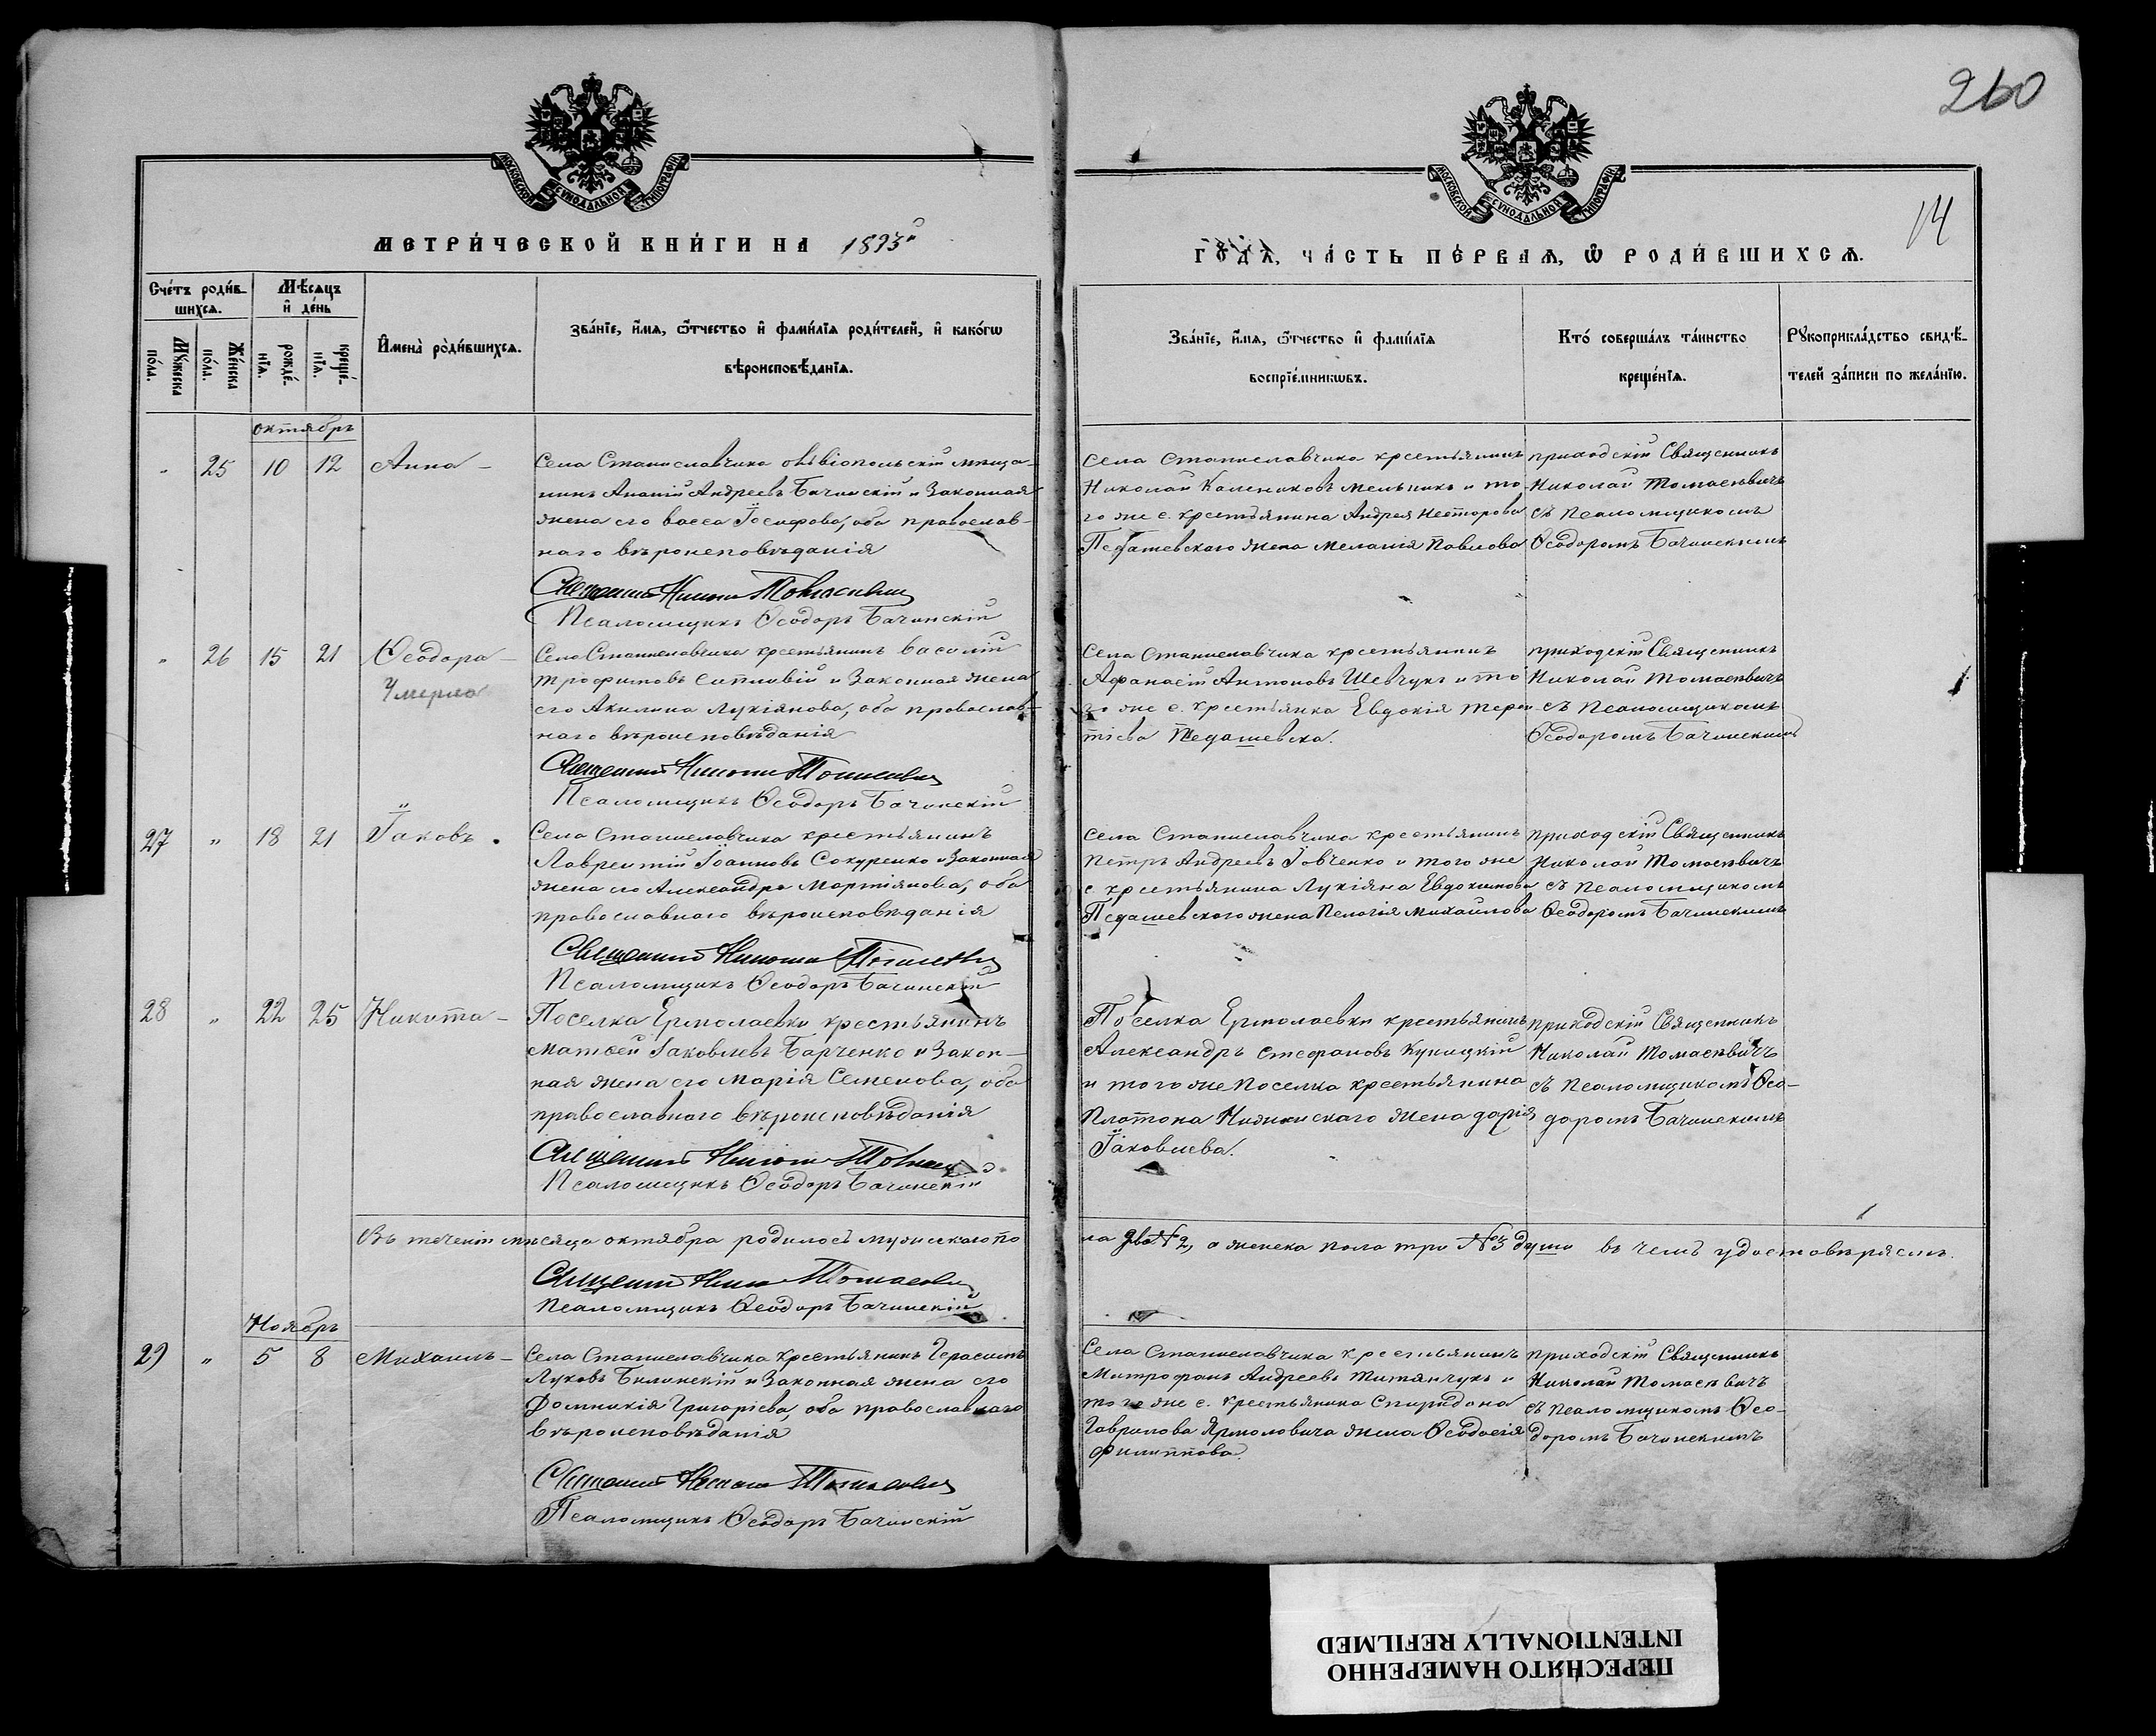 260
14
МОСКОВСКОЙ СѴНОДАЛЬНОЙ ТИПОГРАФІИ
МОСКОВСКОЙ СѴНОДАЛЬНОЙ ТИПОГРАФІИ
МЕТРИ́ЧЕСКОЙ КНИ́ГИ НА 1893й
ГО́ДЪ, ЧА́СТЬ ПЕ́РВАѦ, Ѡ҆ РОДИ́ВШИХСѦ.
Сче́тъ роди́в-
шихсѧ.
Мѣ́сѧцъ
и҆ де́нь
Мꙋ́жеска
по́ла.
Же́нска
по́ла.
рожде́-
нїѧ.
креще́-
нїѧ.
И҆мена̀ роди́вшихсѧ.
Зва́нїе, и҆́мѧ, ѻ҆́тчество и҆ фами́лїѧ роди́телей, и҆ како́гѡ
вѣроисповѣ́данїѧ.
Зва́нїе, и҆́мѧ, ѻ҆́тчество и҆ фами́лїѧ
воспрїе́мникѡвъ.
Кто̀ соверша́лъ та́инство
креще́нїѧ.
Рꙋкоприкла́дство свидѣ́-
телей за́писи по жела́нїю.
октябрь
" 25 10 12 Анна -
Села Станиславчика овѣіопольскій мѣща-
нинъ Ананій Андреевъ Бачинскій и Законная
жена его Васса Іосифова, оба православ-
наго вѣроисповѣданія
Священникъ Николай Томасевич
Псаломщикъ Ѳеодоръ Бачинскій
Села Станиславчика крестьянинъ
Николай Калениковъ Мельникъ и то-
го же с. крестьянина Андрея Несторова
Педашевского жена Меланія Павлова
приходскій Священникъ
Николай Томасевичъ
съ Псаломщикомъ
Ѳеодоромъ Бачинскимъ
" 26 15 21 Ѳеодора -
Умерла
Села Станиславчика крестьянинъ Василій
Трофимовъ Ситливій и Законная жена
его Акилина Лукіянова, оба православ-
наго вѣроисповѣданія
Священникъ Николай Томасевич
Псаломщикъ Ѳеодоръ Бачинскій
Села Станиславчика крестьянинъ
Афанасій Антоновъ Шевчукъ и то
го же с. крестьянка Евдокія Терен-
тіева Педашевска.
приходскій Священникъ
Николай Томасевичъ
съ Псаломщикомъ
Ѳеодоромъ Бачинскимъ
27 " 18 21 Іаковъ.
Села Станиславчика крестьянинъ
Лаврентій Іоанновъ Сокуренко и Законная
жена его Александра Мартіянова, оба
православнаго вѣроисповѣданія
Священникъ Николай Томасевич
Псаломщикъ Ѳеодоръ Бачинскій
Села Станиславчика крестьянинъ
Петръ Андреевъ Іовченко и того же
с крестьянина Лукіяна Евдокимова
Педашевского жена Пелагія Михайлова
приходскій Священникъ
Николай Томасевичъ
съ Псаломщикомъ
Ѳеодоромъ Бачинскимъ
28 " 22 25 Никита -
Поселка Ермолаевки крестьянинъ
Матѳей Іаковлевъ Барченко и Закон-
ная жена его Марія Семенова, оба
православнаго вѣроисповѣданія
Священникъ Николай Томасевич
Псаломщикъ Ѳеодоръ Бачинскій
Поселка Ермолаевки крестьянинъ
Александръ Стефановъ Куницкій
и того же Поселка крестьянина
Платона жена Дарія
Іаковлева.
приходскій Священникъ
Николай Томасевичъ
съ Псаломщикомъ Ѳео-
доромъ Бачинскимъ
Въ теченіи мѣсяца октября родилось мужескаго по
ла два №2, а женска пола три №3 души въ чемъ удостовѣряемъ.
Священникъ Николай Томасевич
Псаломщикъ Ѳеодоръ Бачинскій
Ноябрь
29 " 5 8 Михаилъ -
Села Станиславчика крестьянинъ Герасимъ
Луковъ Билинскій и Законная жена его
Домникія Григоріева, оба православнаго
вѣроисповѣданія
Священникъ Николай Томасевич
Псаломщикъ Ѳеодоръ Бачинскій
Села Станиславчика крестьянинъ
Митрофанъ Андреевъ Титянчукъ и
того же с. крестьянина Спиридона
Гаврилова Ярмоловича жена Ѳеодосія
Филиппова.
приходскій Священникъ
Николай Томасевичъ
съ Псаломщикомъ Ѳео-
доромъ Бачинскимъ
ПЕРЕСНЯТО НАМЕРЕННО
INTENTIONALLY REFILMED